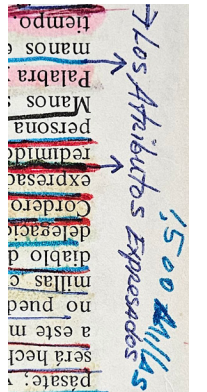 pasate;
será hech
a este m
no pued
millas c
diablo d
delegació
Cordero
expresad
redimido
persona
Manos s
Palabra
manos e
tiempo.
→Los Atributos Expresados
1,500 Millas